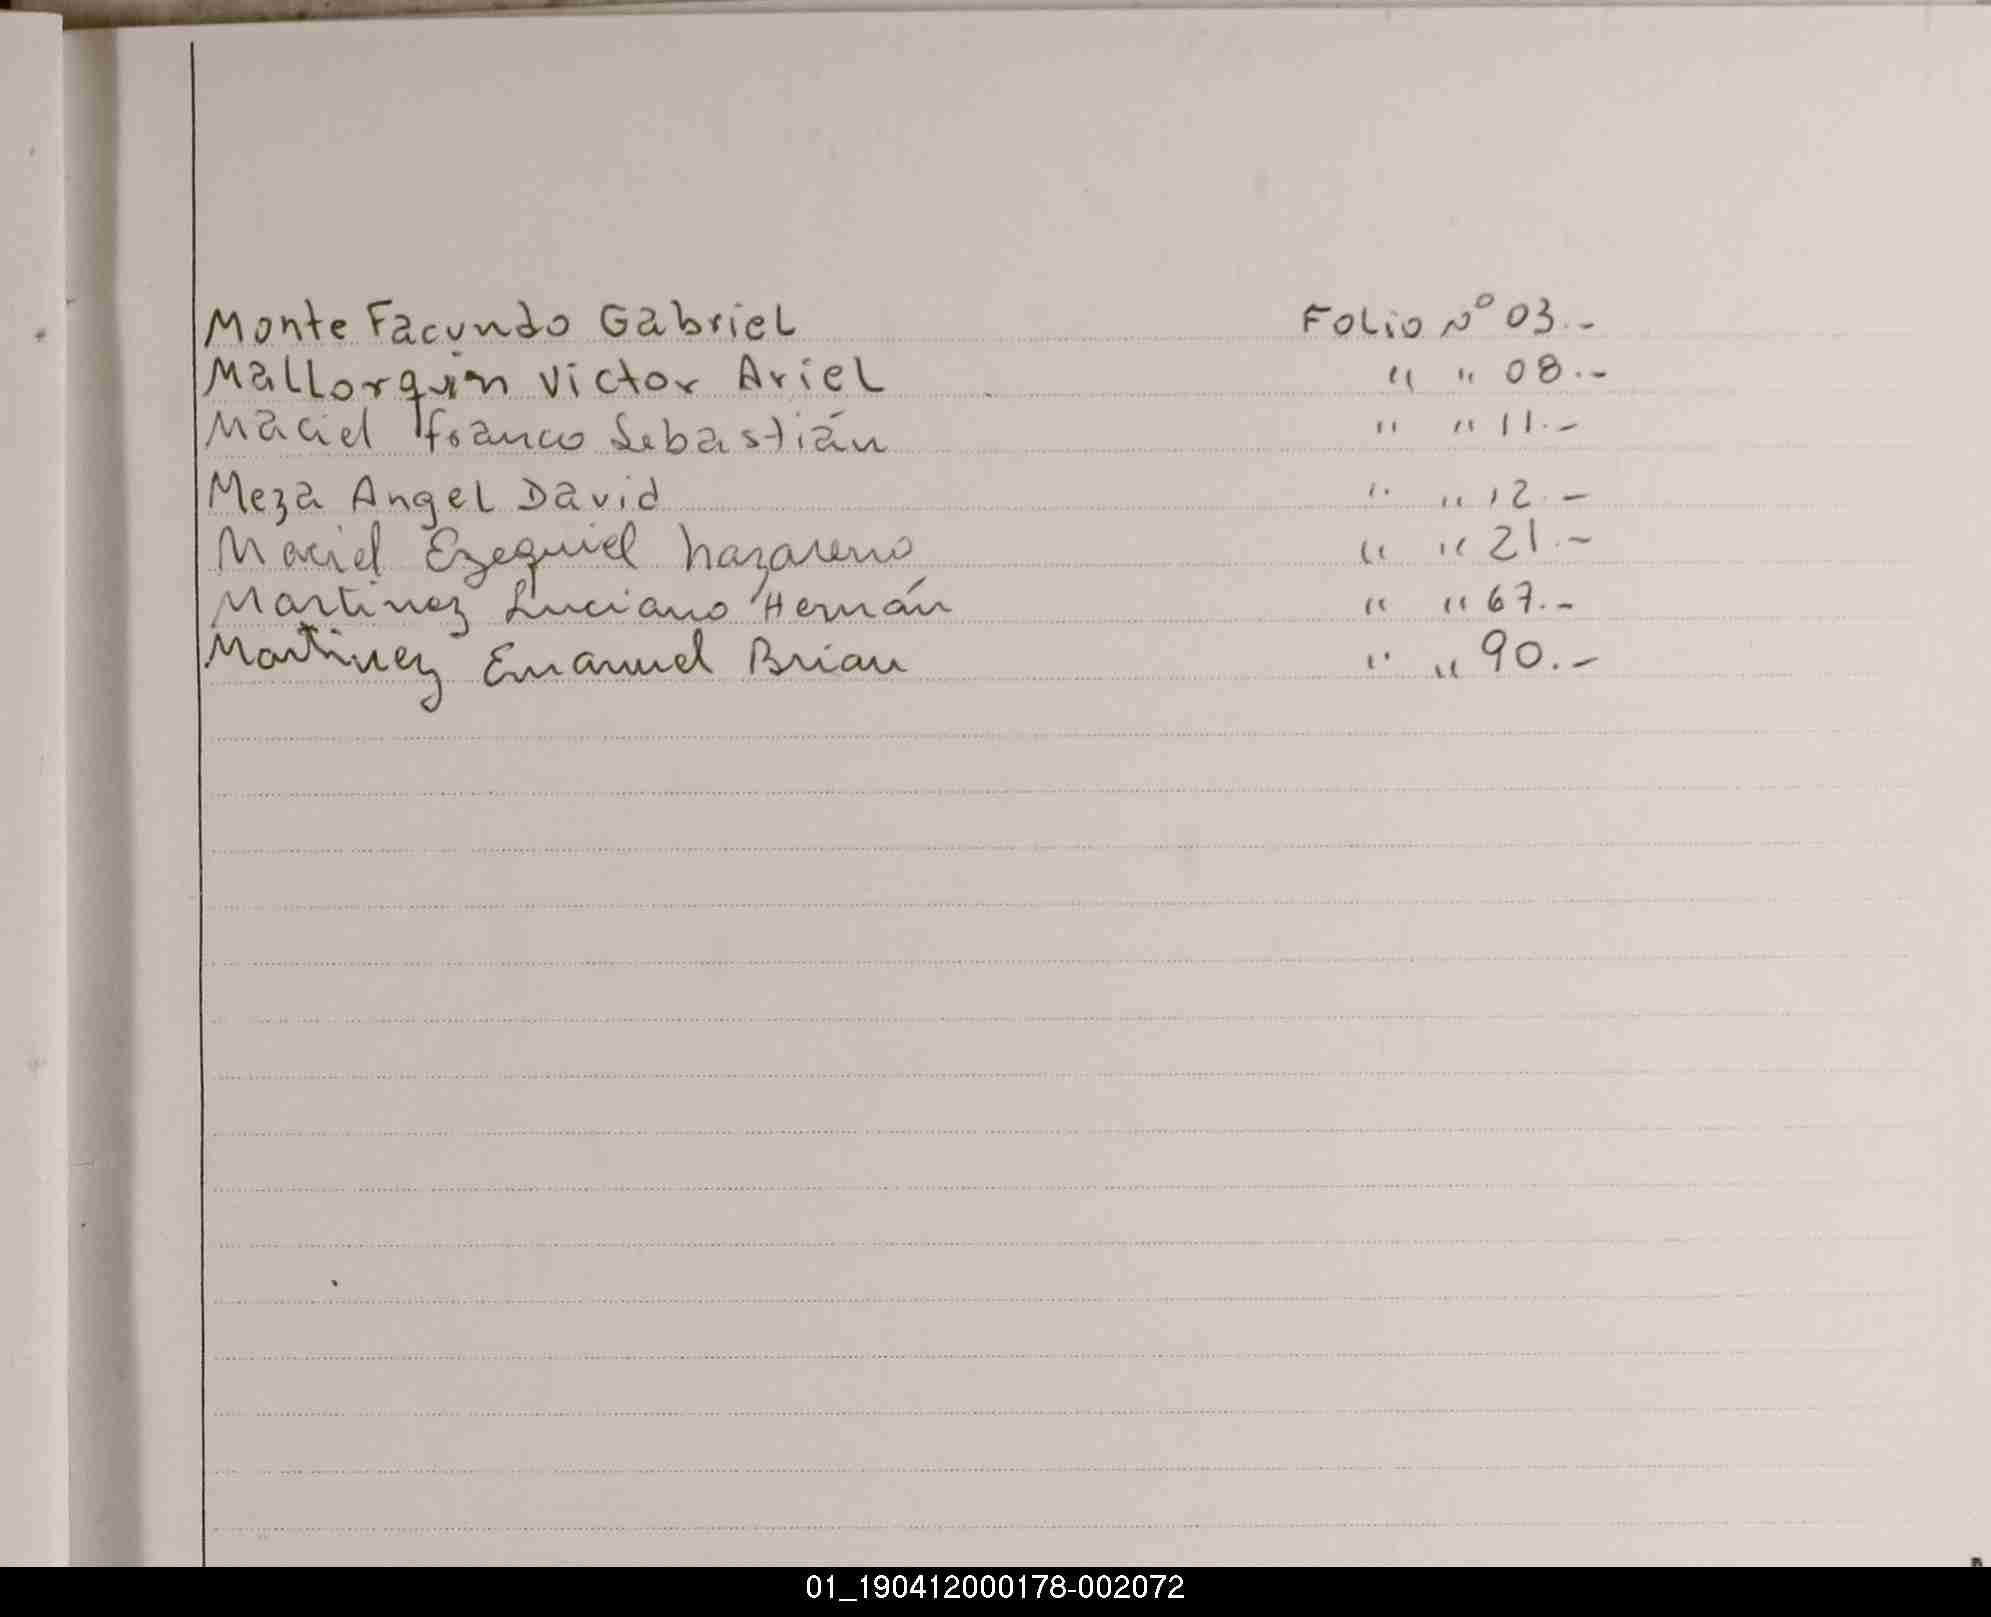 Monte Facundo Gabriel Folio Nº 03.-
Mallorquin Victor Ariel " " 08.-
Maciel Franco Sebastián " " 11.-
Meza Angel David " " 12.-
Maciel Ezequiel Nazareno " " 21.-
Martinez Luciano Hernán " " 67.-
Martinez Emanuel Brian " " 90.-
01_190412000178-002072